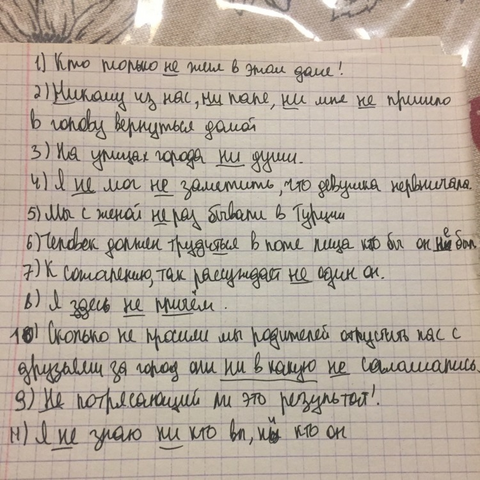 1) Кто только не жил в этом доме!
2) Никому из нас, ни папе, ни мне не пришло
в голову вернуться домой
3) На улицах города ни души.
4) Я не мог не заметить, что девушка нервничала.
5) Мы с женой не раз бывали в Турции
6) Человек должен трудиться в поте лица кто бы он не был
7) К сожалению, так рассуждает не один он.
8) Я здесь не причём.
10) Сколько не просили мы родителей отпустить нас с
друзьями за город они ни в какую не соглашались.
9) Не потрясающий ли это результат!
11) Я не знаю ни кто вы, ни кто он